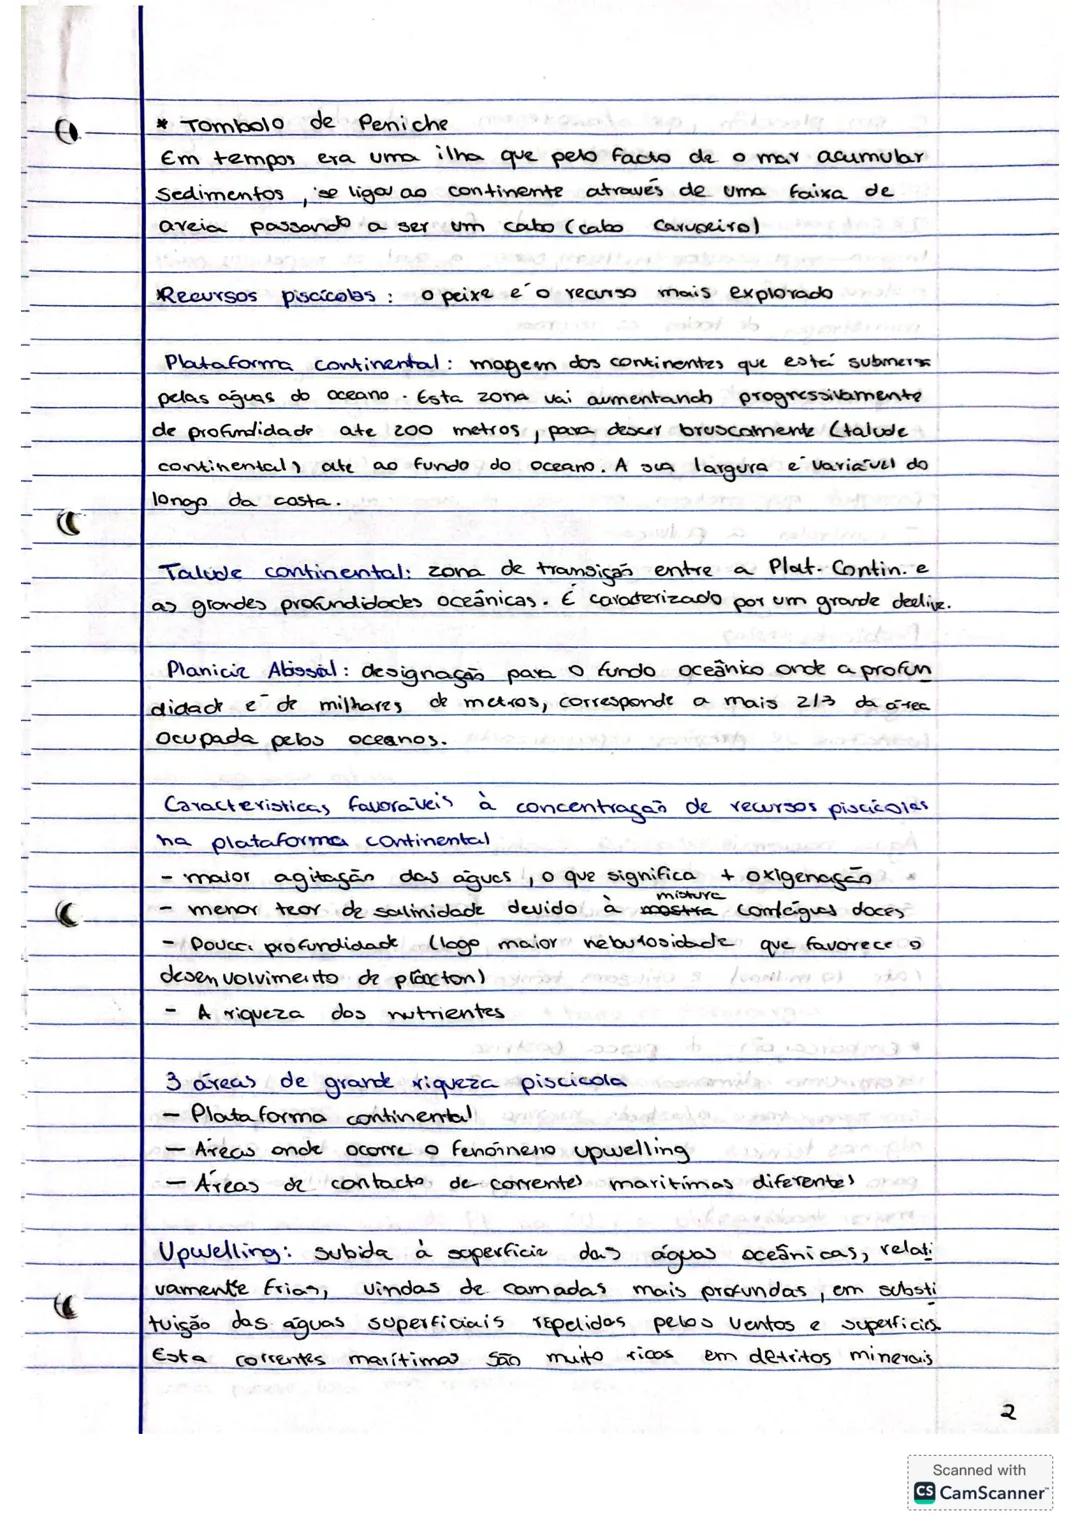 * Tombolo de Peniche
Em tempos era uma ilha que pelo facto de o mar acumular
sedimentos, se ligou ao continente através de uma faixa de
areia passando a ser um cabo (cabo Carvoeiro)
Recursos piscícolas : o peixe é o recurso mais explorado
Plataforma continental: magem dos continentes que está submersa
pelas águas do oceano. Esta zona vai aumentando progressivamente
de profundidade ate 200 metros, para descer bruscamente (talude
continental) ate ao fundo do oceano. A sua largura é variável do
longo da costa.
Talude continental: zona de transição entre a Plat. Contin. e
as grandes profundidades oceânicas. É caraterizado por um grande declive.
Planicie Abissal: designação para o fundo oceânico onde a profun
didade é de milhares de metros, corresponde a mais 2/3 da área
ocupada pelos oceanos.
Caracteristicas favoráveis à concentração de recursos piscícolas
na plataforma continental
- maior agitação das águas, o que significa + oxigenação
mistura
- menor teor de salinidade devido à mostra com águas doces
- Pouca profundidade (logo maior nebulosidade que favorece o
desenvolvimento de plâcton)
- A riqueza dos nutrientes
3 áreas de grande riqueza piscicola
- Plataforma continental
- Áreas onde ocorre o fenómeno upwelling
- Áreas de contacto de correntes maritimas diferentes
Upwelling: subida à superfície das águas oceânicas, relati
vamente frias, vindas de camadas mais profundas, em substi
tuição das águas superficiais repelidas pelos ventos e superfícies.
Esta correntes marítimas são muito ricas em detritos minerais
2
Scanned with
CS CamScanner